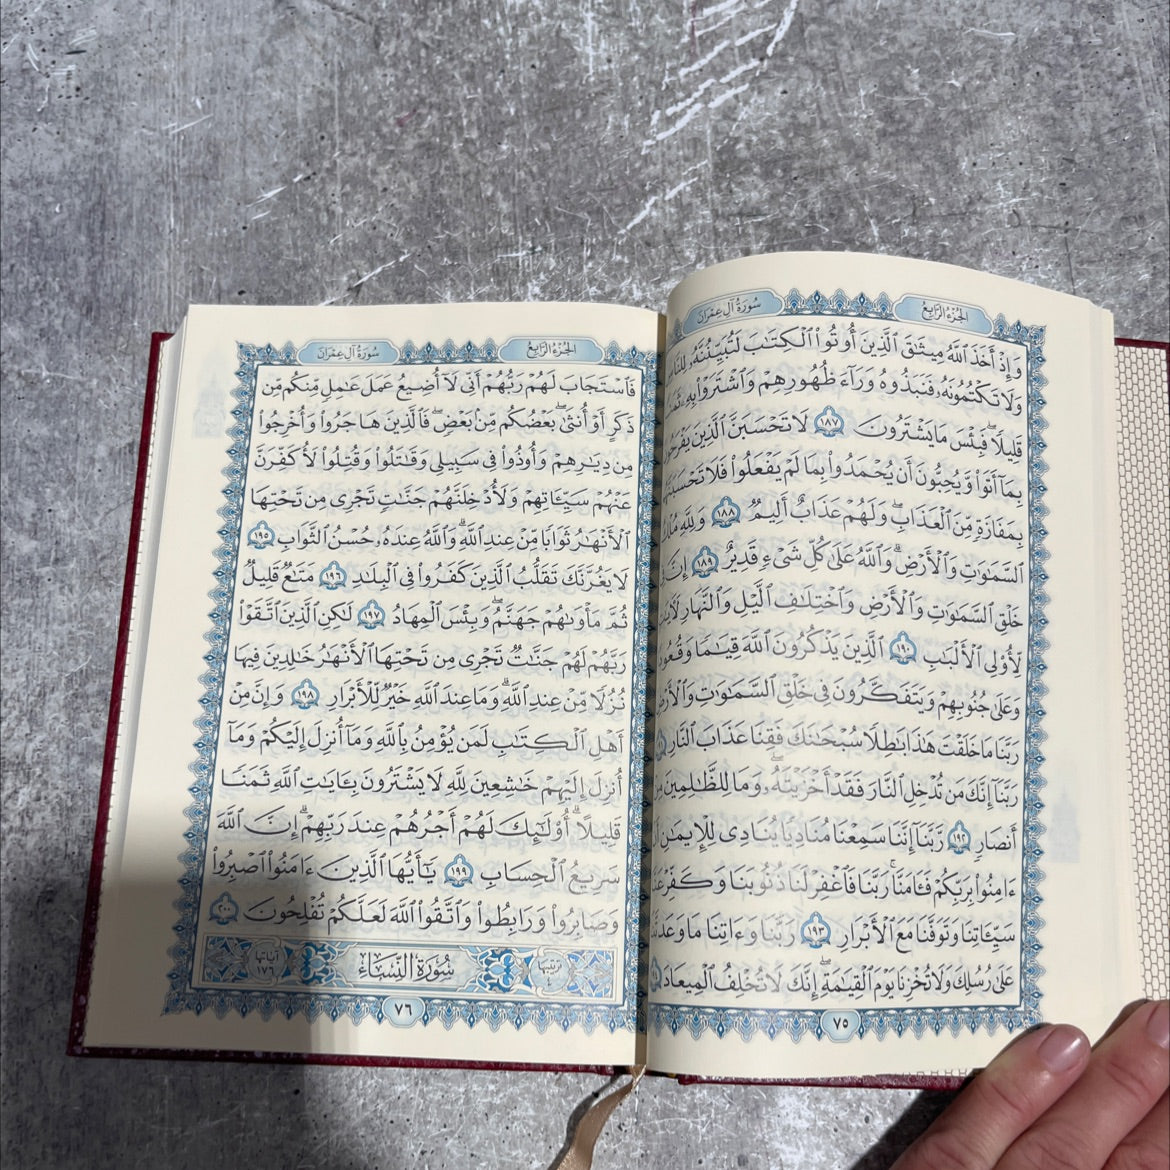 سُورَةُ آلِ عِمْرَانَ
الجُزْءُ الرَّابِعُ
وَإِذْ أَخَذَ ٱللَّهُ مِيثَٰقَ ٱلَّذِينَ أُوتُوا۟ ٱلْكِتَٰبَ لَتُبَيِّنُنَّهُۥ لِلنَّاسِ
وَلَا تَكْتُمُونَهُۥ فَنَبَذُوهُ وَرَآءَ ظُهُورِهِمْ وَٱشْتَرَوْا۟ بِهِۦ
قَلِيلًا ۖ فَبِئْسَ مَا يَشْتَرُونَ ١٨٧ لَا تَحْسَبَنَّ ٱلَّذِينَ يَفْرَحُونَ
بِمَآ أَتَوا۟ وَّيُحِبُّونَ أَن يُحْمَدُوا۟ بِمَا لَمْ يَفْعَلُوا۟ فَلَا تَحْسَبَنَّهُم
بِمَفَازَةٍ مِّنَ ٱلْعَذَابِ ۖ وَلَهُمْ عَذَابٌ أَلِيمٌ ١٨٨ وَلِلَّهِ مُلْكُ
ٱلسَّمَٰوَٰتِ وَٱلْأَرْضِ ۗ وَٱللَّهُ عَلَىٰ كُلِّ شَىْءٍ قَدِيرٌ ١٨٩ إِنَّ
خَلْقِ ٱلسَّمَٰوَٰتِ وَٱلْأَرْضِ وَٱخْتِلَٰفِ ٱلَّيْلِ وَٱلنَّهَارِ لَءَايَٰتٍ
لِّأُو۟لِى ٱلْأَلْبَٰبِ ١٩٠ ٱلَّذِينَ يَذْكُرُونَ ٱللَّهَ قِيَٰمًا وَقُعُودًا
وَعَلَىٰ جُنُوبِهِمْ وَيَتَفَكَّرُونَ فِى خَلْقِ ٱلسَّمَٰوَٰتِ وَٱلْأَرْضِ
رَبَّنَا مَا خَلَقْتَ هَٰذَا بَٰطِلًا سُبْحَٰنَكَ فَقِنَا عَذَابَ ٱلنَّارِ
رَبَّنَآ إِنَّكَ مَن تُدْخِلِ ٱلنَّارَ فَقَدْ أَخْزَيْتَهُۥ ۖ وَمَا لِلظَّٰلِمِينَ مِنْ
أَنصَارٍ ١٩٢ رَّبَّنَآ إِنَّنَا سَمِعْنَا مُنَادِيًا يُنَادِى لِلْإِيمَٰنِ أَنْ
ءَامِنُوا۟ بِرَبِّكُمْ فَـَٔامَنَّا ۚ رَبَّنَا فَٱغْفِرْ لَنَا ذُنُوبَنَا وَكَفِّرْ عَنَّا
سَيِّـَٔاتِنَا وَتَوَفَّنَا مَعَ ٱلْأَبْرَارِ ١٩٣ رَبَّنَا وَءَاتِنَا مَا وَعَدتَّنَا
عَلَىٰ رُسُلِكَ وَلَا تُخْزِنَا يَوْمَ ٱلْقِيَٰمَةِ ۗ إِنَّكَ لَا تُخْلِفُ ٱلْمِيعَادَ
٧٥
سُورَةُ آلِ عِمْرَانَ
الجُزْءُ الرَّابِعُ
فَٱسْتَجَابَ لَهُمْ رَبُّهُمْ أَنِّى لَآ أُضِيعُ عَمَلَ عَٰمِلٍ مِّنكُم مِّن
ذَكَرٍ أَوْ أُنثَىٰ ۖ بَعْضُكُم مِّنۢ بَعْضٍ ۖ فَٱلَّذِينَ هَاجَرُوا۟ وَأُخْرِجُوا۟
مِن دِيَٰرِهِمْ وَأُوذُوا۟ فِى سَبِيلِى وَقَٰتَلُوا۟ وَقُتِلُوا۟ لَأُكَفِّرَنَّ
عَنْهُمْ سَيِّـَٔاتِهِمْ وَلَأُدْخِلَنَّهُمْ جَنَّٰتٍ تَجْرِى مِن تَحْتِهَا
ٱلْأَنْهَٰرُ ثَوَابًا مِّنْ عِندِ ٱللَّهِ ۗ وَٱللَّهُ عِندَهُۥ حُسْنُ ٱلثَّوَابِ ١٩٥
لَا يَغُرَّنَّكَ تَقَلُّبُ ٱلَّذِينَ كَفَرُوا۟ فِى ٱلْبِلَٰدِ ١٩٦ مَتَٰعٌ قَلِيلٌ
ثُمَّ مَأْوَىٰهُمْ جَهَنَّمُ ۚ وَبِئْسَ ٱلْمِهَادُ ١٩٧ لَٰكِنِ ٱلَّذِينَ ٱتَّقَوْا۟
رَبَّهُمْ لَهُمْ جَنَّٰتٌ تَجْرِى مِن تَحْتِهَا ٱلْأَنْهَٰرُ خَٰلِدِينَ فِيهَا
نُزُلًا مِّنْ عِندِ ٱللَّهِ ۗ وَمَا عِندَ ٱللَّهِ خَيْرٌ لِّلْأَبْرَارِ ١٩٨ وَإِنَّ مِنْ
أَهْلِ ٱلْكِتَٰبِ لَمَن يُؤْمِنُ بِٱللَّهِ وَمَآ أُنزِلَ إِلَيْكُمْ وَمَآ
أُنزِلَ إِلَيْهِمْ خَٰشِعِينَ لِلَّهِ لَا يَشْتَرُونَ بِـَٔايَٰتِ ٱللَّهِ ثَمَنًا
قَلِيلًا ۗ أُو۟لَٰٓئِكَ لَهُمْ أَجْرُهُمْ عِندَ رَبِّهِمْ ۗ إِنَّ ٱللَّهَ
سَرِيعُ ٱلْحِسَابِ ١٩٩ يَٰٓأَيُّهَا ٱلَّذِينَ ءَامَنُوا۟ ٱصْبِرُوا۟
وَصَابِرُوا۟ وَرَابِطُوا۟ وَٱتَّقُوا۟ ٱللَّهَ لَعَلَّكُمْ تُفْلِحُونَ ٢٠٠
ترتيبها ٤ سُورَةُ النِّسَاءِ آياتها ١٧٦
٧٦